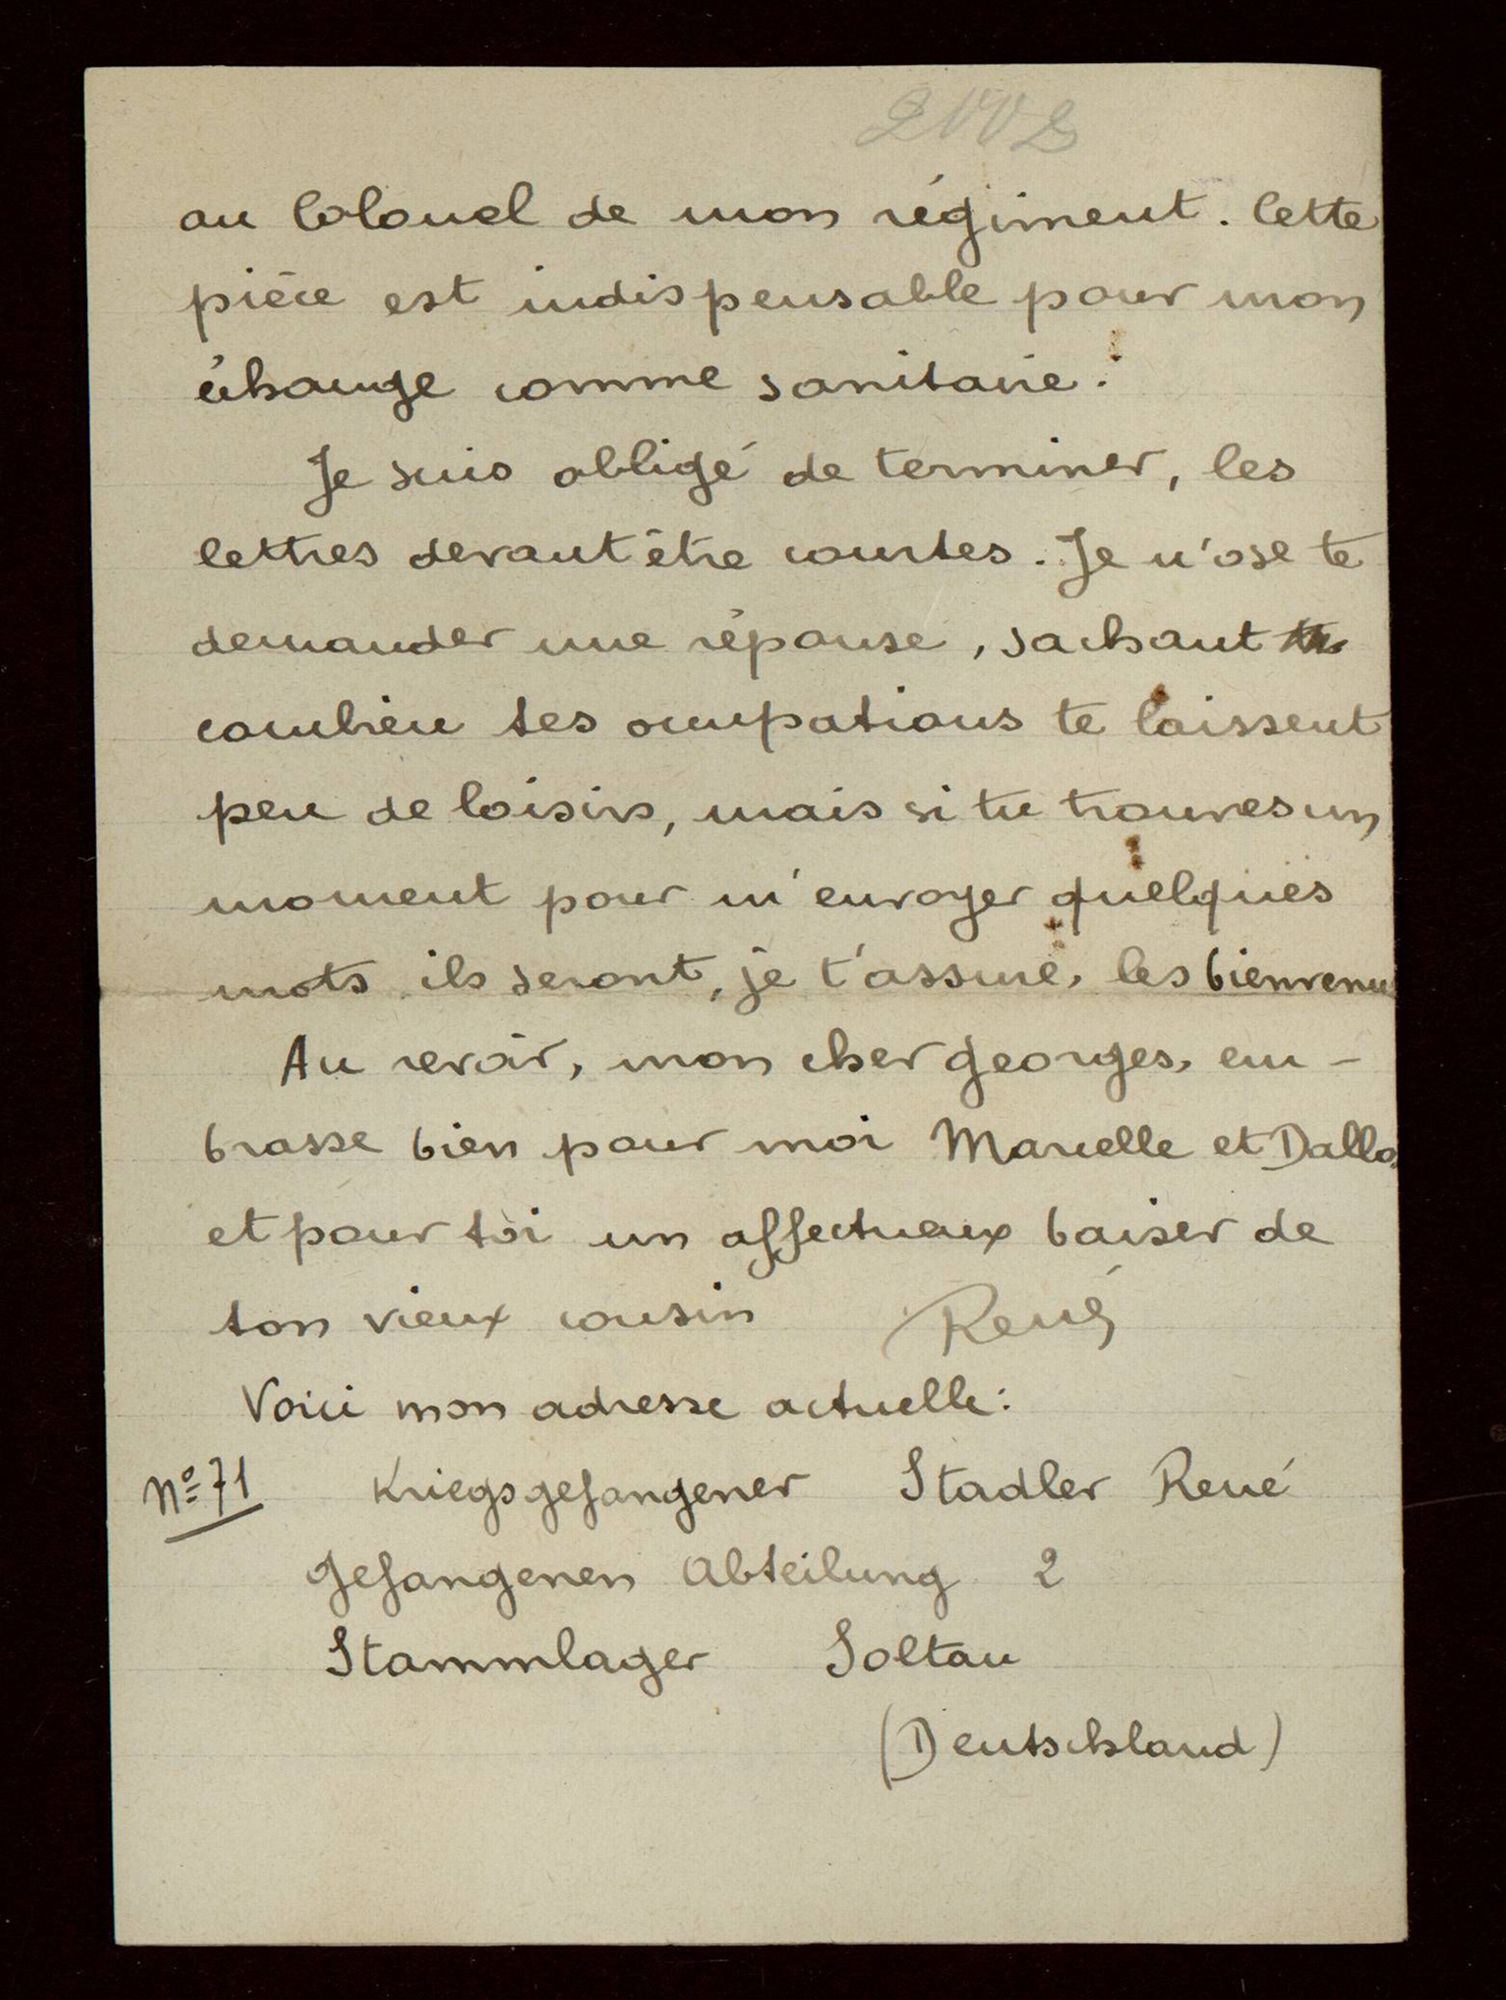 au Colonel de mon régiment. Cette
pièce est indispensable pour mon
échange comme sanitaire.
Je suis obligé de terminer, les
lettres devant être courtes. Je n'ose te
demander une réponse, sachant
combien tes occupations te laissent
peu de loisirs, mais si tu trouves un
moment pour m'envoyer quelques
mots ils seront, je t'assure, les bienvenu
Au revoir, mon cher Georges, em-
brasse bien pour moi Marcelle et
et pour toi un affectueux baiser de
ton vieux cousin René
Voici mon adresse actuelle:
No 71 Kriegsgefangener Stadler René
Gefangenen Abteilung 2
Stammlager Soltau
(Deutschland)